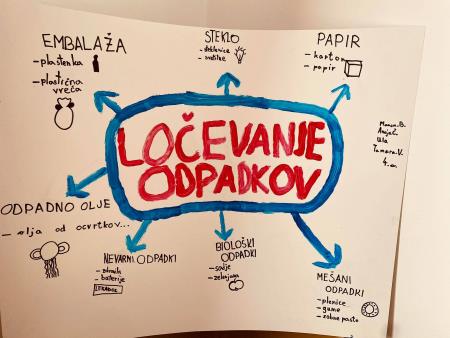 EMBALAŽA
- plastenka
- plastična
vreča
STEKLO
- steklenice
PAPIR
- karton
- papir
LOČEVANJE
ODPADKOV
Ula
Tamara V.
4. a
ODPADNO OLJE
- olja od ocvrtkov...
NEVARNI ODPADKI
- zdravila
- baterije
BIOLOŠKI
ODPADKI
- sadje
- zelenjava
MEŠANI
ODPADKI
- plenice
- gume
- zobna pasta